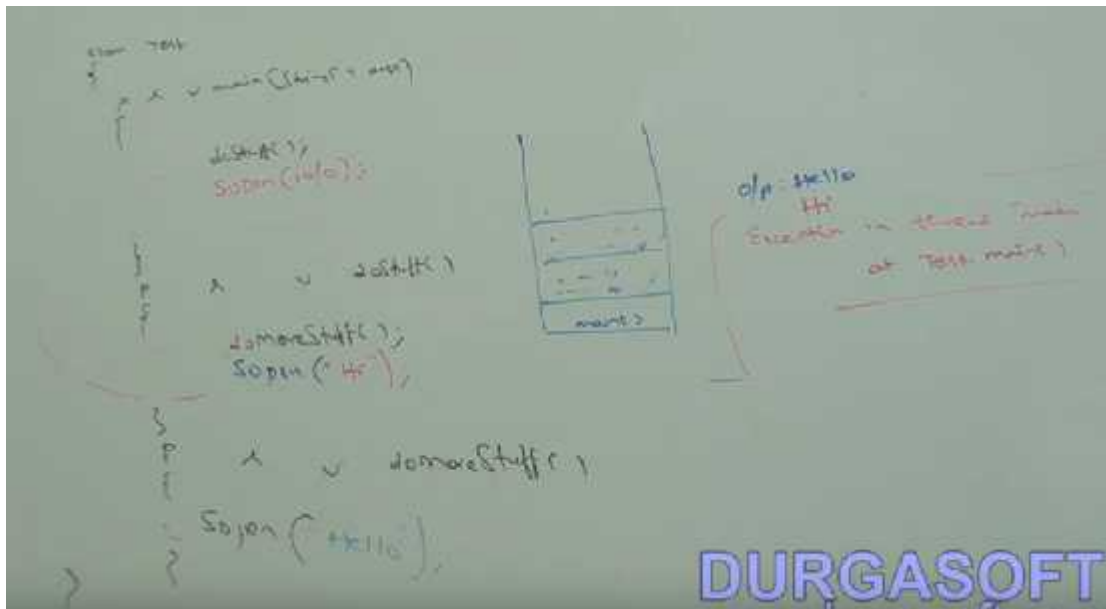 class Test
{
p s v main(String[] args)
{
doStuff();
Sopln(10/0);
}
p s v doStuff()
{
doMoreStuff();
Sopln("Hi");
}
p s v doMoreStuff()
{
Sopln("Hello");
}
}
main()
o/p: Hello
Hi
Exception in thread "main"
at Test.main()
DURGASOFT